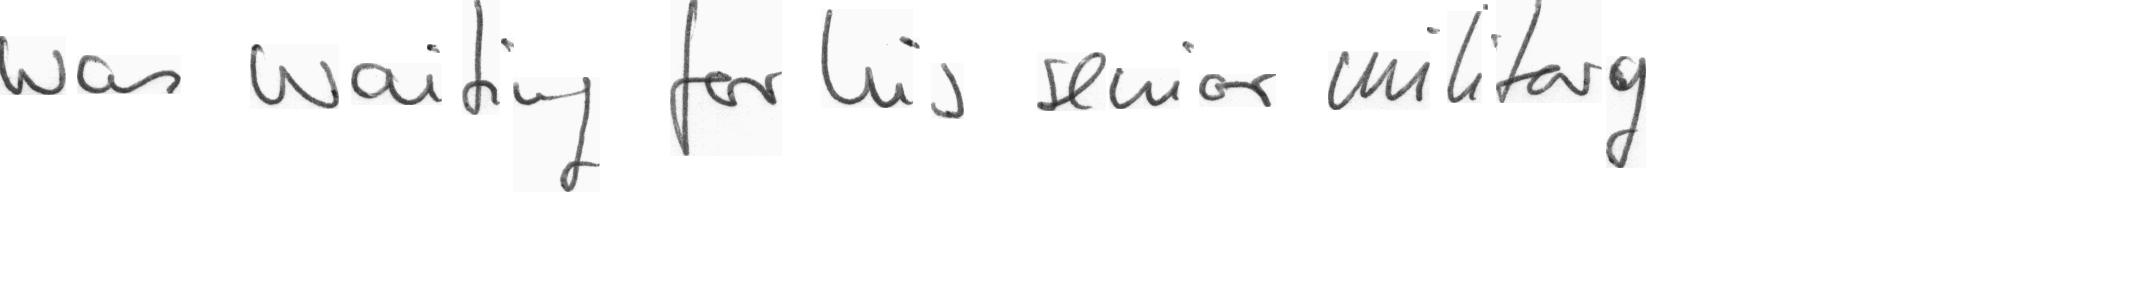 was waiting for his senior military